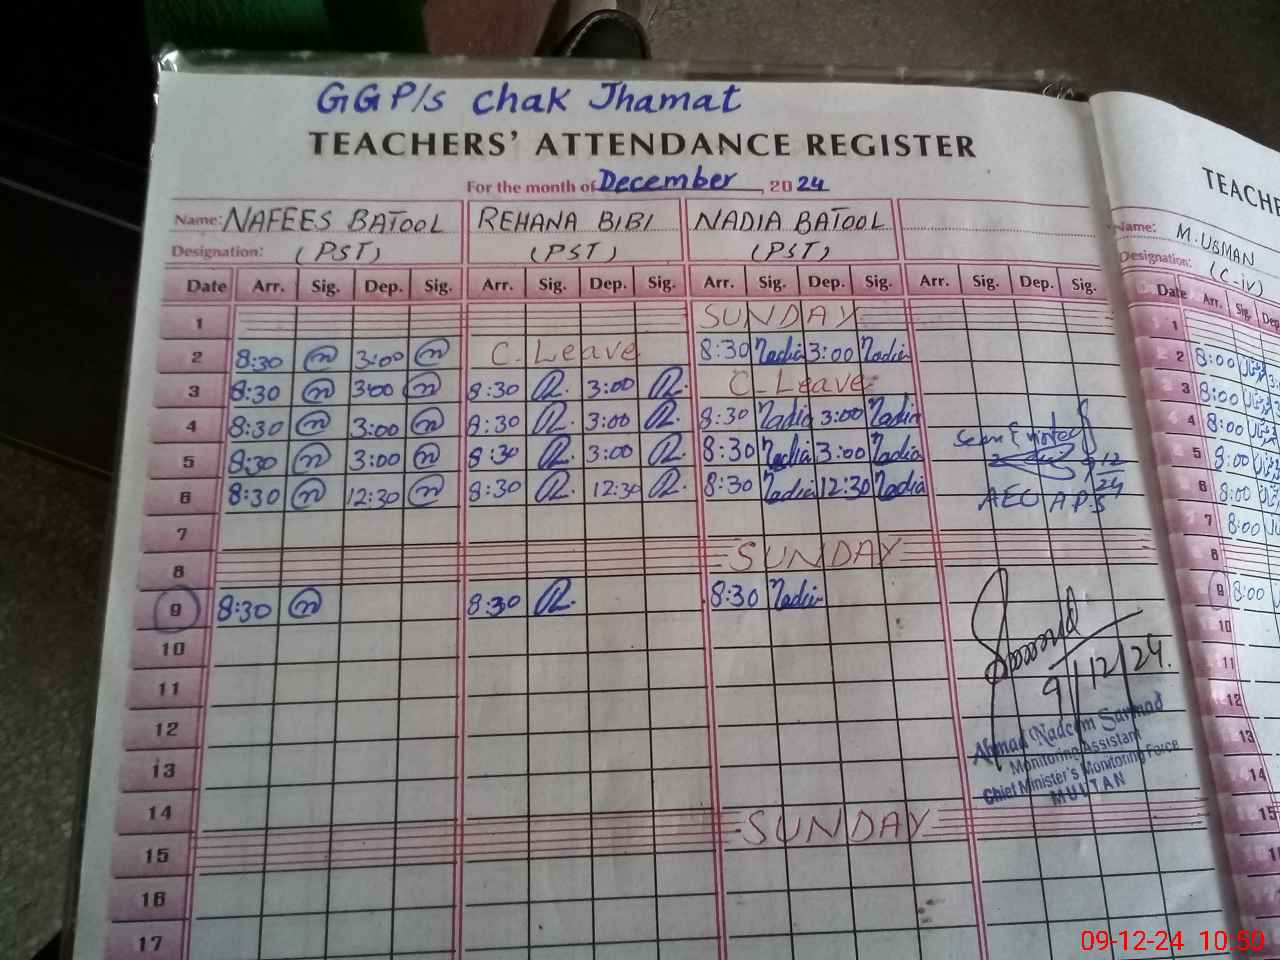 GGP/s chak Jhamat
TEACHERS' ATTENDANCE REGISTER
For the month of December, 2024
Name: NAFEES BATOOL REHANA BIBI NADIA BATOOL
Designation: (PST) (PST) (PST)
Date Arr. Sig. Dep. Sig. Arr. Sig. Dep. Sig. Arr. Sig. Dep. Sig. Arr. Sig. Dep. Sig.
1 SUNDAY
2 8:30 n 3:00 n C. Leave 8:30 Nadia 3:00 Nadia
3 8:30 n 3:00 n 8:30 R. 3:00 R. C. Leave
4 8:30 n 3:00 n 8:30 R. 3:00 R. 8:30 Nadia 3:00 Nadia
5 8:30 n 3:00 n 8:30 R. 3:00 R. 8:30 Nadia 3:00 Nadia
6 8:30 n 12:30 n 8:30 R. 12:30 R. 8:30 Nadia 12:30 Nadia
AEO A.P.S
7
8 SUNDAY
9 8:30 n 8:30 R. 8:30 Nadia
10
11
9/12/24.
12
Ahmad Nadeem Sarmad
Monitoring Assistant
13
Chief Minister's Monitoring Force
MULTAN
14
15 SUNDAY
16
17
TEACHE
Name: M. USMAN
Designation: (C-iv)
Date Arr. Sig.
1
2 8:00
3 8:00
4 8:00
5 8:00
6 8:00
7 8:00
8
9 8:00
10
11
12
13
14
15
09-12-24 10:50